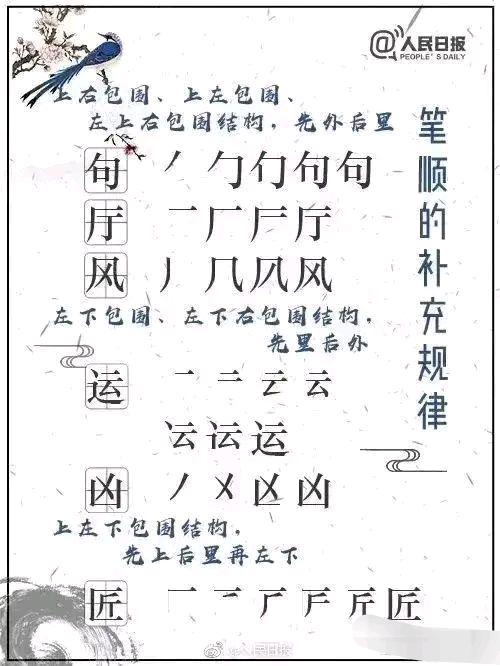 @人民日报
PEOPLE'S DAILY
笔顺的补充规律
上右包围、上左包围、
左上右包围结构，先外后里
句 丿 勹 勹 句 句
厅 一 厂 厅
风 丿 几 凡 风
左下包围、左下右包围结构，
先里后外
运 一 二 云 云
云 运 运
凶 丿 㐅 凶 凶
上左下包围结构，
先上后里再左下
匠 一 匠
@人民日报